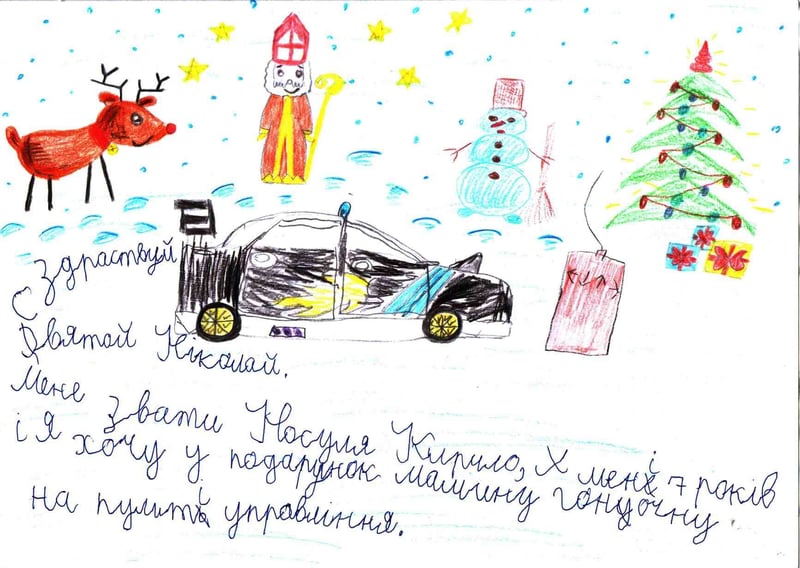 Здраствуй
Святой Ніколай.
Мене звати Носуля Кирило, Х мені 7 років
і я хочу у подарунок машину гоночну
на пульті управління.